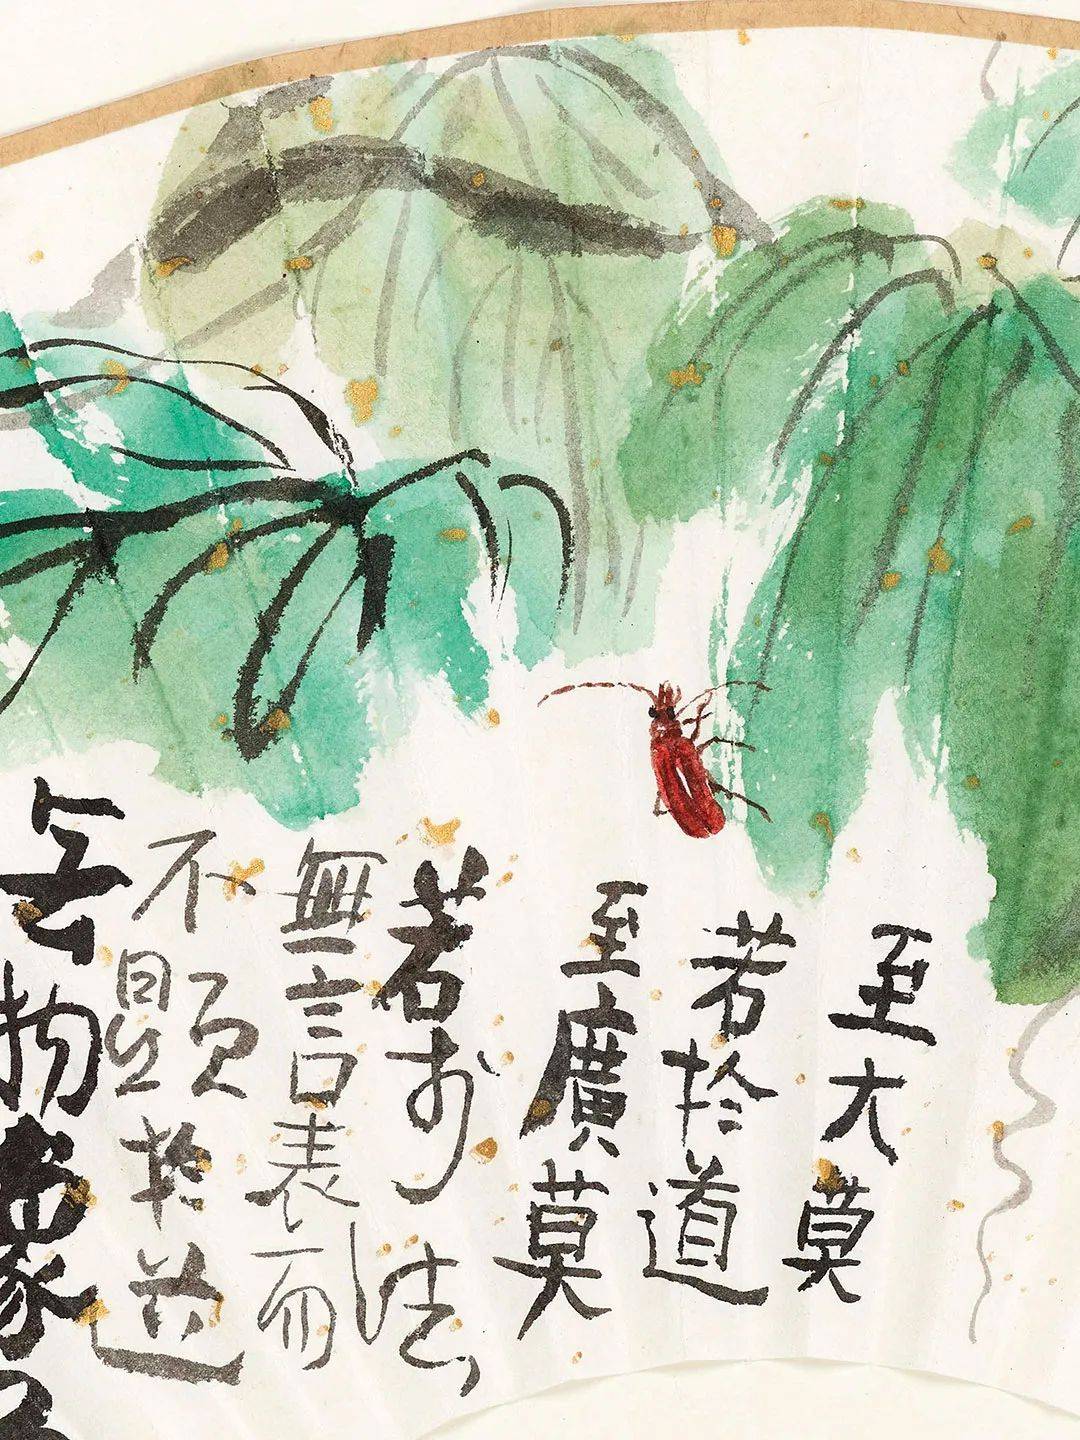 至大莫
若扵道
至廣莫
若于法
無言表而
不顯扵道
无物象